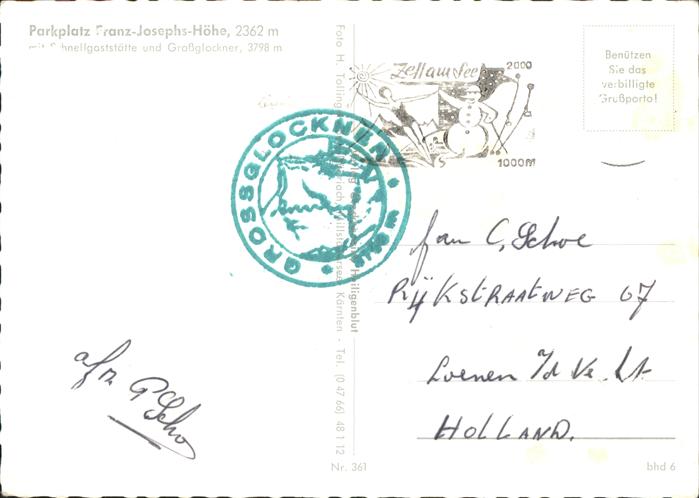 Parkplatz Franz-Josephs-Höhe, 2362 m
mit Schnellgaststätte und Großglockner, 3798 m
Foto H. Tolling
Heiligenblut
Kärnten - Tel. (0 47 66) 48 1 12
Zell am See
2000
1000M
Benützen
Sie das
verbilligte
Grußporto!
GROSSGLOCKNER
3798 m
fam C. Schoe
Rijkstraatweg 67
Loenen a/d Vecht
HOLLAND.
afz P Scho
Nr. 361
bhd 6